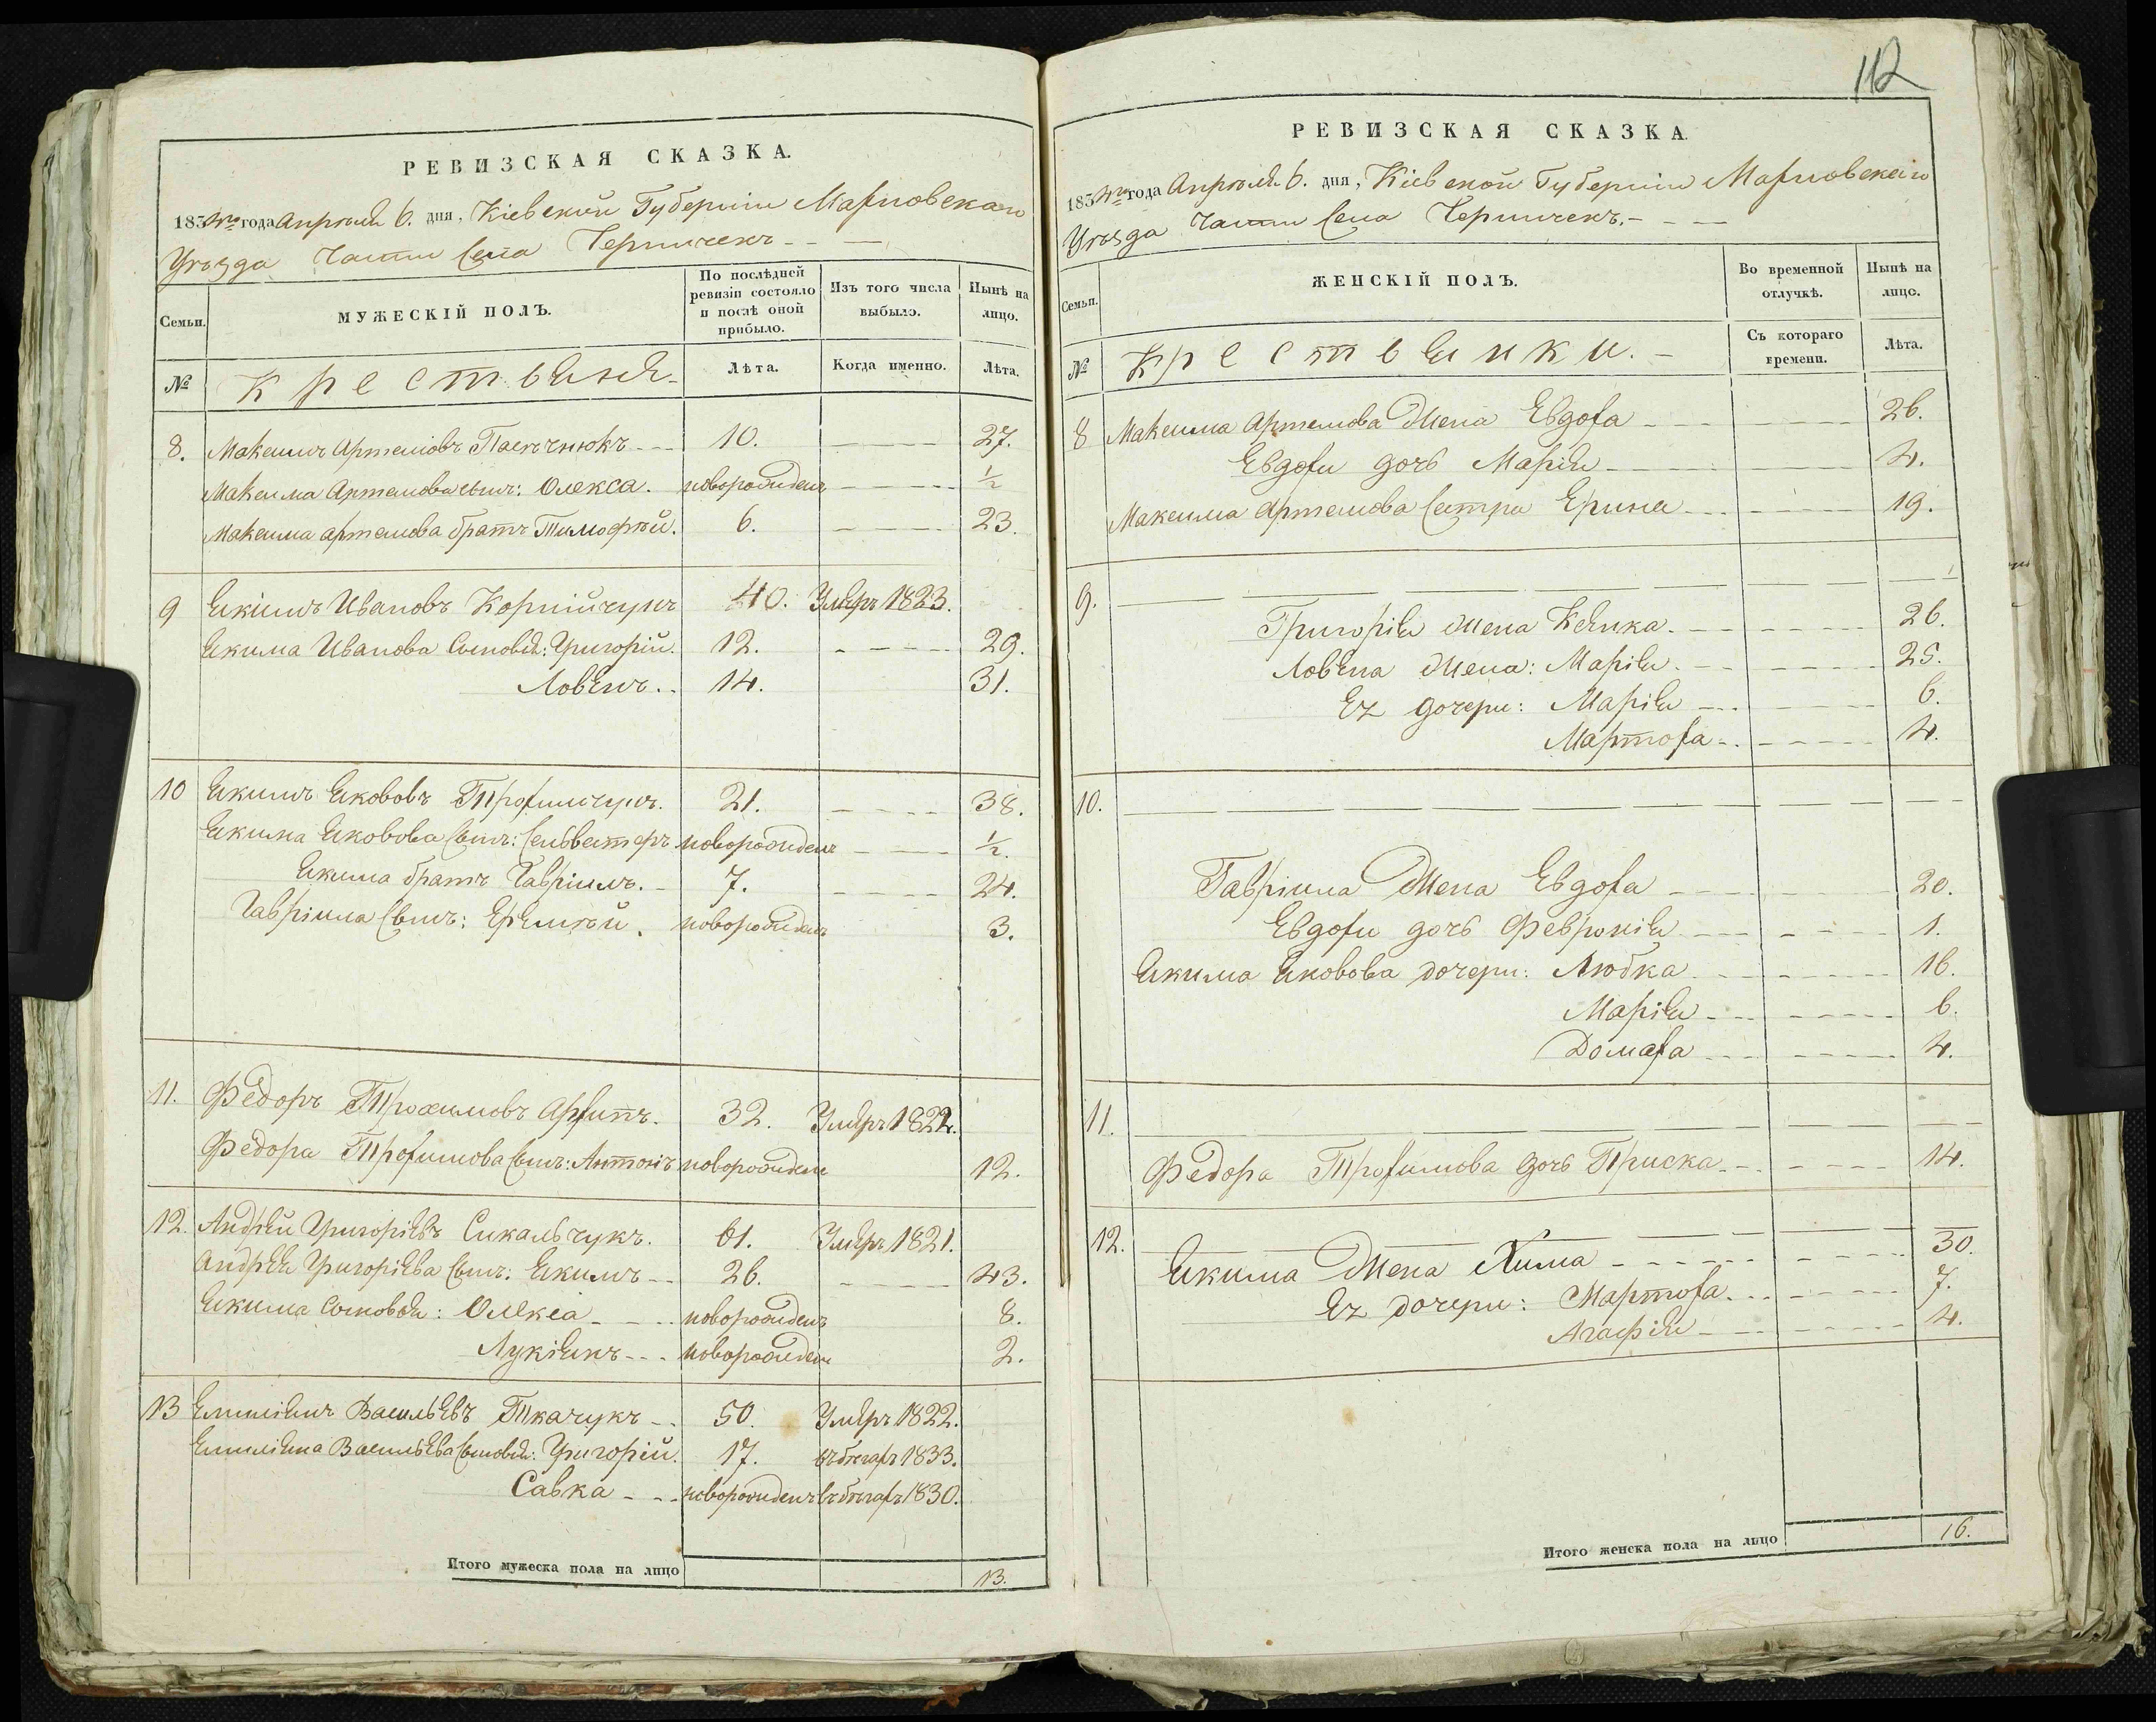 112
РЕВИЗСКАЯ СКАЗКА.
1834го года Апрѣля 6. дня, Кіевской Губерніи Махновскаго
Уѣзда Части Села Терпичекъ
Семьи.
МУЖЕСКІЙ ПОЛЪ.
По послѣдней ревизіи состояло и послѣ оной прибыло.
Изъ того числа выбыло.
Нынѣ на лицо.
№ Крестьяня
Лѣта. Когда именно. Лѣта.
8. Максимъ Артемовъ 10. 27.
Максима Артемова сынъ: Олекса. новорожденъ ½
Максима Артемова братъ Тимофѣй. 6. 23.
9 Якимъ Ивановъ Корнійчукъ 40. Умеръ 1823.
Якима Иванова Сыновья: Григорій. 12. 29.
Ловенъ 14. 31.
10 Якимъ Якововъ Трохимчукъ. 21. 38.
Якима Яковова Сынъ: Сельвестеръ новорожденъ ½.
Якима братъ Гавріилъ. 7. 24.
Гавріила Сынъ: Еремѣй. новорожденъ 3.
11. Федоръ Трохимовъ Архипъ. 32. Умеръ 1822.
Федора Трохимова Сынъ: Антонъ новорожденъ 12.
12. Андрей Григоріевъ Сикальчукъ. 61. Умеръ 1821.
Андрея Григоріева Сынъ: Якимъ 26. 43.
Якима Сыновья: Олекса новорожденъ 8.
Лукіянъ новорожденъ 2.
13 Емиліянъ Васильевъ Ткачукъ 50. Умеръ 1822.
Емиліяна Васильева Сыновья: Григорій. 17. въ бѣгахъ 1833.
Савка новорожденъ въ бѣгахъ 1830.
Итого мужеска пола на лицо 13.
РЕВИЗСКАЯ СКАЗКА.
1834го года Апрѣля 6. дня, Кіевской Губерніи Махновскаго
Уѣзда Части Села Терпичекъ.
Семьи.
ЖЕНСКІЙ ПОЛЪ.
Во временной отлучкѣ.
Нынѣ на лицо.
№ Крестьянки.
Съ котораго времени. Лѣта.
8 Максима Артемова Жена Евдоха 26.
Евдохи дочь Марія 4.
Максима Артемова Сестра Ерина 19.
9.
Григорія Жена Келика. 26.
Ловена Жена: Марія. 25.
Ея дочери: Марія 6.
Мартоха 4.
10.
Гавріила Жена Евдоха 20.
Евдохи дочь Февронія 1.
Якима Яковова дочери: Любка 16.
Марія 6.
Домаха 4.
11.
Федора Трохимова дочьПриска 14.
12.
Якима Жена Хима 30.
Ея дочери: Мартоха 7.
Агафія 4.
Итого женска пола на лицо 16.